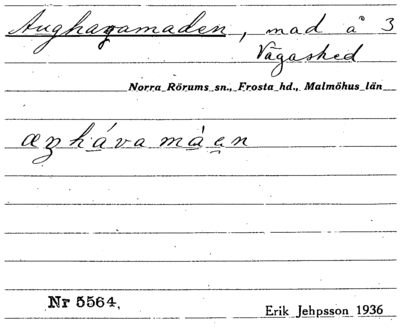 Aughagamaden, mad å 3
Vågashed
Norra Rörums sn., Frosta hd., Malmöhus län
Nr 5564.
Erik Jehpsson 1936